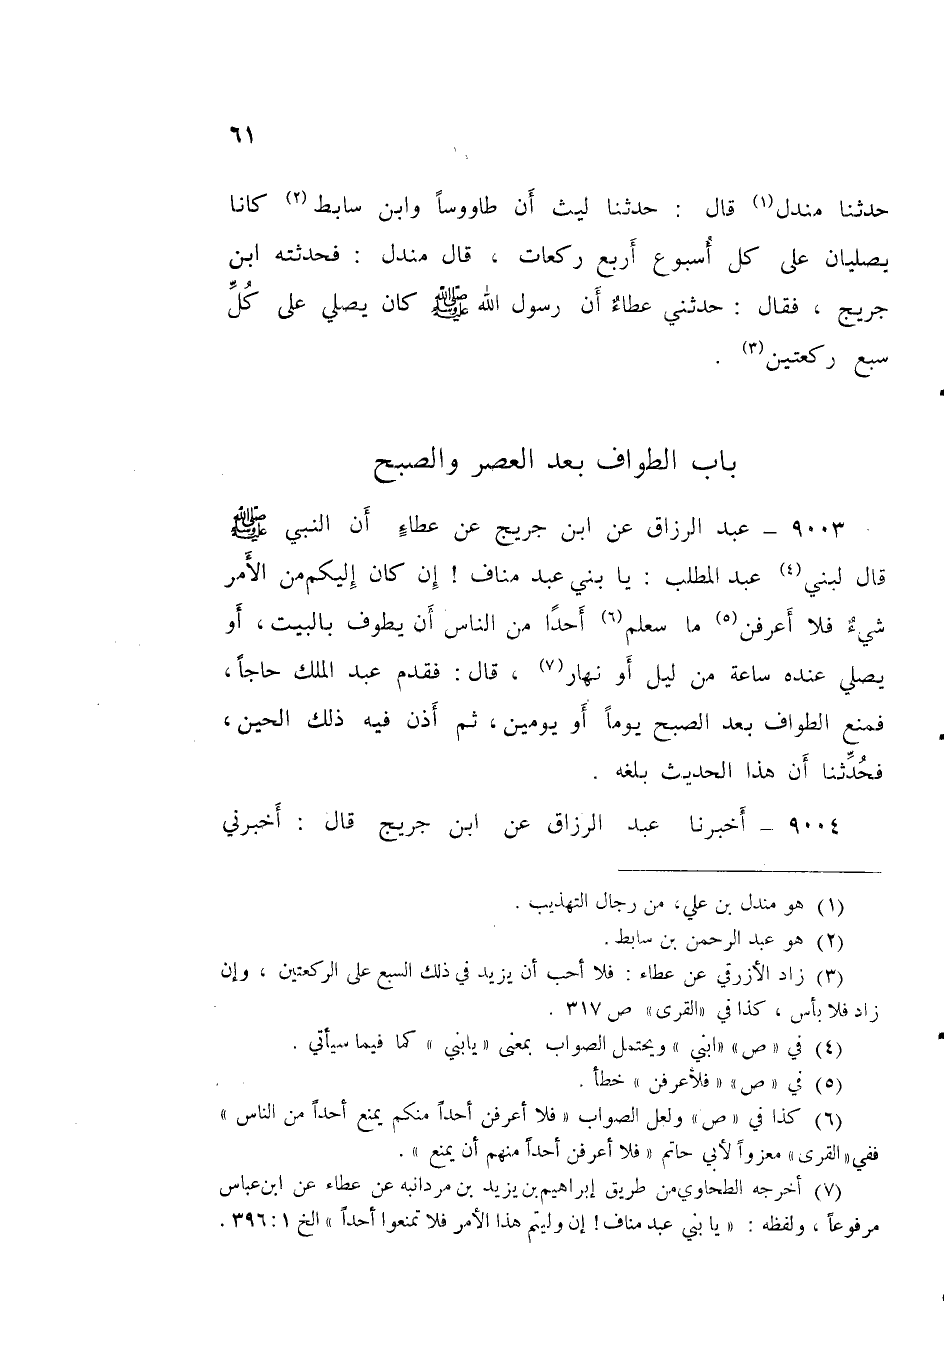 ٦١
حدثنا مندل(١) قال : حدثنا ليث أن طاووساً وابن سابط(٢) كانا
يصليان على كل أُسبوع أَربع ركعات ، قال مندل : فحدثته ابن
جريج ، فقال : حدثني عطاءٌ أَن رسول الله ﷺ كان يصلي على كُلِّ
سبع ركعتين(٣) .
باب الطواف بعد العصر والصبح
٩٠٠٣ ــ عبد الرزاق عن ابن جريج عن عطاءٍ أَن النبي ﷺ
قال لبني(٤) عبد المطلب : يا بني عبد مناف ! إن كان إليكم من الأَمر
شيءٌ فلا أَعرفن(٥) ما سعلم(٦) أَحدًا من الناس أَن يطوف بالبيت ، أَو
يصلي عنده ساعة من ليل أَو نهار(٧) ، قال : فقدم عبد الملك حاجاً ،
فمنع الطواف بعد الصبح يوماً أَو يومين ، ثم أَذن فيه ذلك الحين ،
فحُدِّثنا أَن هذا الحديث بلغه .
٩٠٠٤ ــ أَخبرنا عبد الرزاق عن ابن جريج قال : أَخبرني
(١) هو مندل بن علي، من رجال التهذيب .
(٢) هو عبد الرحمن بن سابط .
(٣) زاد الأزرقي عن عطاء : فلا أحب أن يزيد في ذلك السبع على الركعتين ، وإن
زاد فلا بأس ، كذا في «القرى» ص ٣١٧ .
(٤) في « ص» «ابني » ويحتمل الصواب بمعنى « يابني » كما فيما سيأتي .
(٥) في « ص» « فلأعرفن » خطأ .
(٦) كذا في « ص» ولعل الصواب « فلا أعرفن أحداً منكم يمنع أحداً من الناس »
ففي «القرى» معزواً لأبي حاتم « فلا أعرفن أحداً منهم أن يمنع » .
(٧) أخرجه الطحاوي من طريق إبراهيم بن يزيد بن مردانبه عن عطاء عن ابن عباس
مرفوعاً ، ولفظه : « يا بني عبد مناف ! إن وليتم هذا الأمر فلا تمنعوا أحداً » الخ ١ : ٣٩٦ .